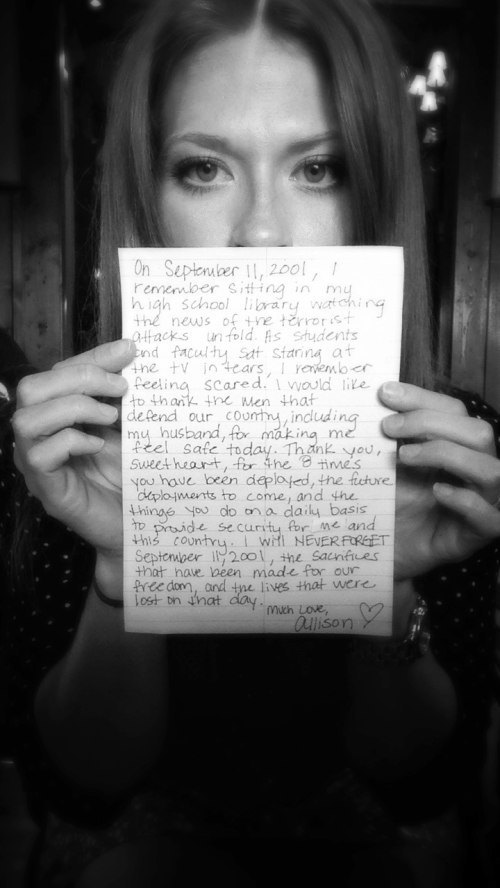 On September 11, 2001, I
remember sitting in my
high school library watching
the news of the terrorist
attacks unfold. As students
and faculty sat staring at
the TV in tears, I remember
feeling scared. I would like
to thank the men that
defend our country, including
my husband, for making me
feel safe today. Thank you,
sweetheart, for the 8 times
you have been deployed, the future
deployments to come, and the
things you do on a daily basis
to provide security for me and
this country. I will NEVER FORGET
September 11, 2001, the sacrifices
that have been made for our
freedom, and the lives that were
lost on that day.
Much Love,
Allison ♡